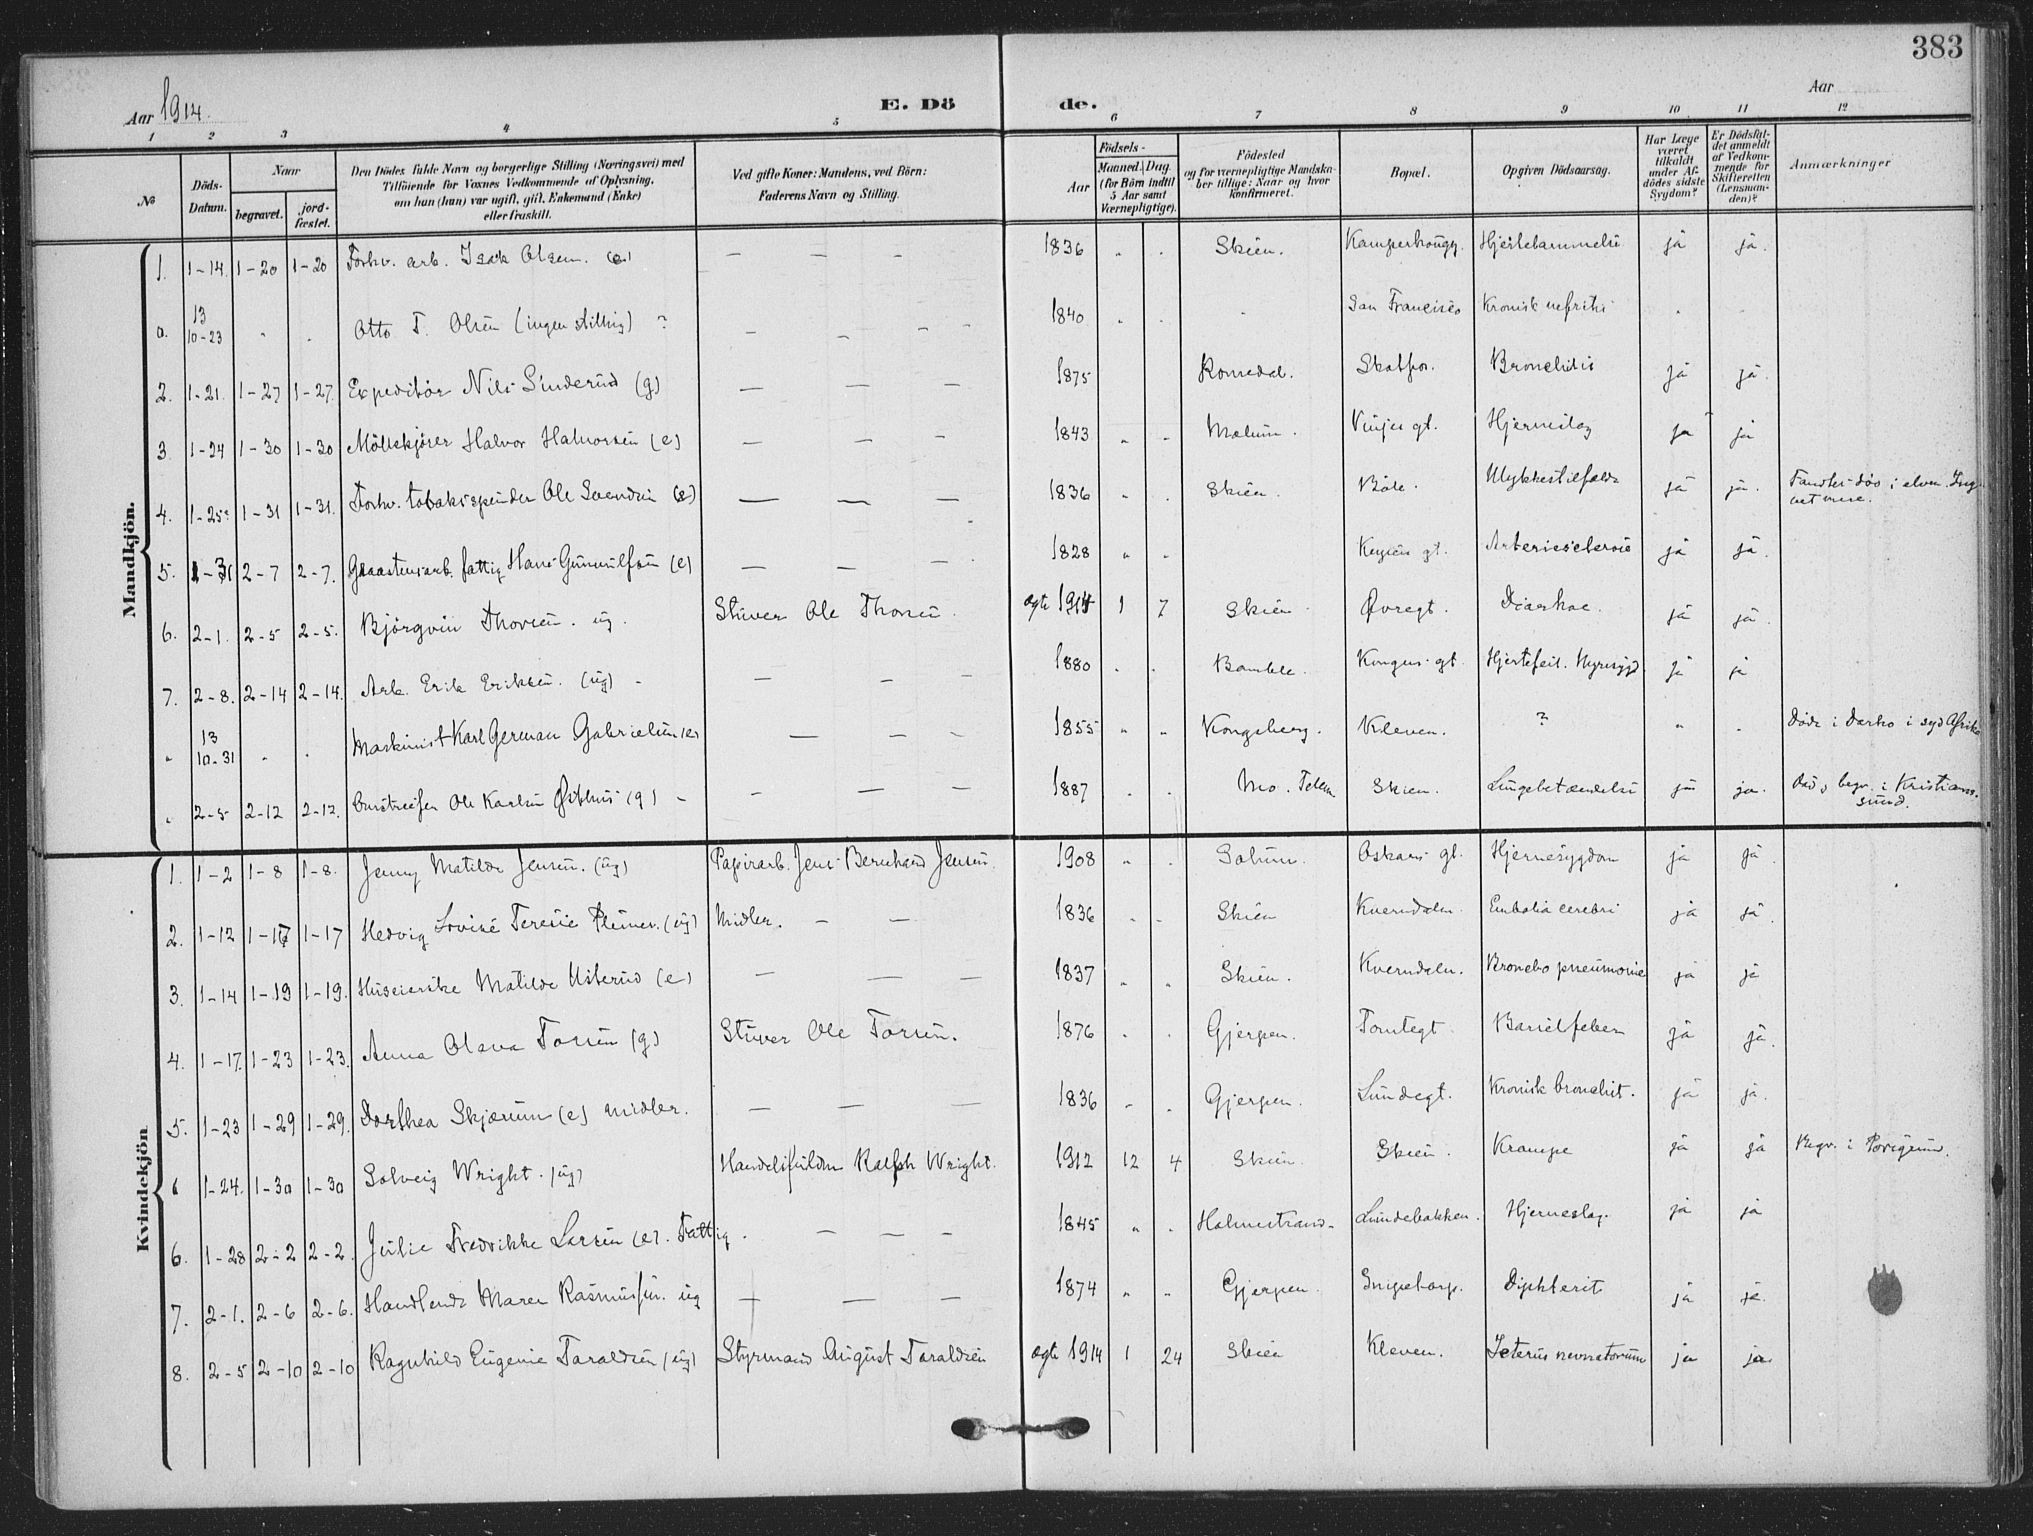 383
Aar 1914.
E. Döde.
Aar
1 2 3 4 5 6 7 8 9 10 11 12
№
Döds-Datum.
Naar
begravet.
jord-fæstet.
Den Dödes fulde Navn og borgerlige Stilling (Næringsvei) med
Tilföiende for Voxnes Vedkommende af Oplysning,
om han (hun) var ugift, gift, Enkemand (Enke)
eller fraskilt.
Ved gifte Koner: Mandens, ved Börn:
Faderens Navn og Stilling.
Födsels-
Aar
Maaned. Dag.
(for Börn indtil
5 Aar samt
Værnepligtige).
Födested
og for værnepligtige Mandska-
ber tillige: Naar og hvor
konfirmeret.
Bopæl.
Opgiven Dödsaarsag.
Har Læge
været
tilkaldt
under Af-
dödes sidste
Sygdom?
Er Dödsfal-
det anmeldt
af Vedkom-
mende for
Skifteretten
(Lensman-
den)?
Anmærkninger
Mandkjön.
1. 1-14. 1-20 1-20 Forhv. arb. Isak Olsen. (e) — — — 1836 " . Skien. Kamperhougg. Hjertelammelse ja ja.
0. 13 10-23 . . Otto T. Olsen (ingen stilling) ? — — — 1840 . . . San Francisco Kronisk nefrit . .
2. 1-21. 1-27 1-27. Expeditör Nils Sinderud (g) — — — 1875 Romedal. Skotfos. Bronchitis ja ja.
3. 1-24 1-30 1-30 Möllekjører Halvor Halvorsen (e) — — — 1843 " . Mælum. Vinjes gt. Hjerneslag ja ja
4. 1-25 1-31 1-31. Forhv. tobakspinder Ole Svendsen (e) — — — 1836 . . Skien. Böle. Ulykkestilfælde ja ja. Fandtes död i elven. Ing-
et mere.
5. 1-31 2-7 2-7. Graastensarb. fattig Hans Gunnulfsen (e) — — — 1828 " . gt. Arteriesclerose ja ja.
6. 2-1. 2-5 2-5. Björgvin Thorsen. ug. Stuver Ole Thorsen. ægte 1914 1 7 Skien. Øvregt. Diarrhoe. ja ja.
7. 2-8. 2-14 2-14. Arb. Erik Eriksen. (ug) — — — 1880 . . Bamble. Konges gt. Hjertefeil. Nyresygd. ja ja
" 13 10-31 . . Maskinist Karl German Gabrielsen (e) — — — 1855 " " Kongsberg. Kleven. ? " . Döde i i syd Afrika
" 2-5 2-12 2-12. Ole Karlsen Østhus (g) — — — 1887 . . Mo. Telem. Skien. Lungebetændelse ja ja. Död & begr. i Kristians-
sund.
Kvindekjön
1. 1-2 1-8 1-8. Jenny Matilde Jensen. (ug) Papirarb. Jens Bernhard Jensen. 1908 " . Solum. Oskars gt. Hjernesygdom ja ja
2. 1-12 1-17 1-17 Hedvig Lovise Teresie Plenner. (ug) Midler. — — 1836 " . Skien Kverndalen. Embolia cerebri ja ja.
3. 1-14 1-19 1-19. Huseierske Matilde Usterud (e) — — — 1837 " " Skien. Kverndalen. Broncho pneumonie ja ja
4. 1-17. 1-23 1-23. Anna Olava Torsen (g) Stuver Ole Torsen. 1876 . . Gjerpen. Tomtegt. Barselfeber ja ja.
5. 1-23 1-29 1-29. Dorthea Skjærum (e) midler. — — — 1836 . . Gjerpen. Lundegt. Kronisk bronchit. ja ja.
6 1-24. 1-30 1-30 Solveig Wright. (ug) Handelsfuldm Ralph Wright. 1912 12 4 Skien. Skien. Krampe ja ja Begr. i Porsgrund.
6. 1-28 2-2 2-2. Julie Fredrikke Larsen (e). Fattig. — — — 1845 " . Holmestrand. Lundebakken. Hjerneslag. ja ja
7. 2-1. 2-6 2-6. Handlende Maren Rasmussen. ug — — — 1874 " " Gjerpen. Snipetorp. Diphterit ja ja.
8. 2-5 2-10 2-10 Ragnhild Eugenie Taraldsen (ug) Styrmand August Taraldsen ægte 1914 1 24 Skien Kleven. Icterus neonatorum ja ja.